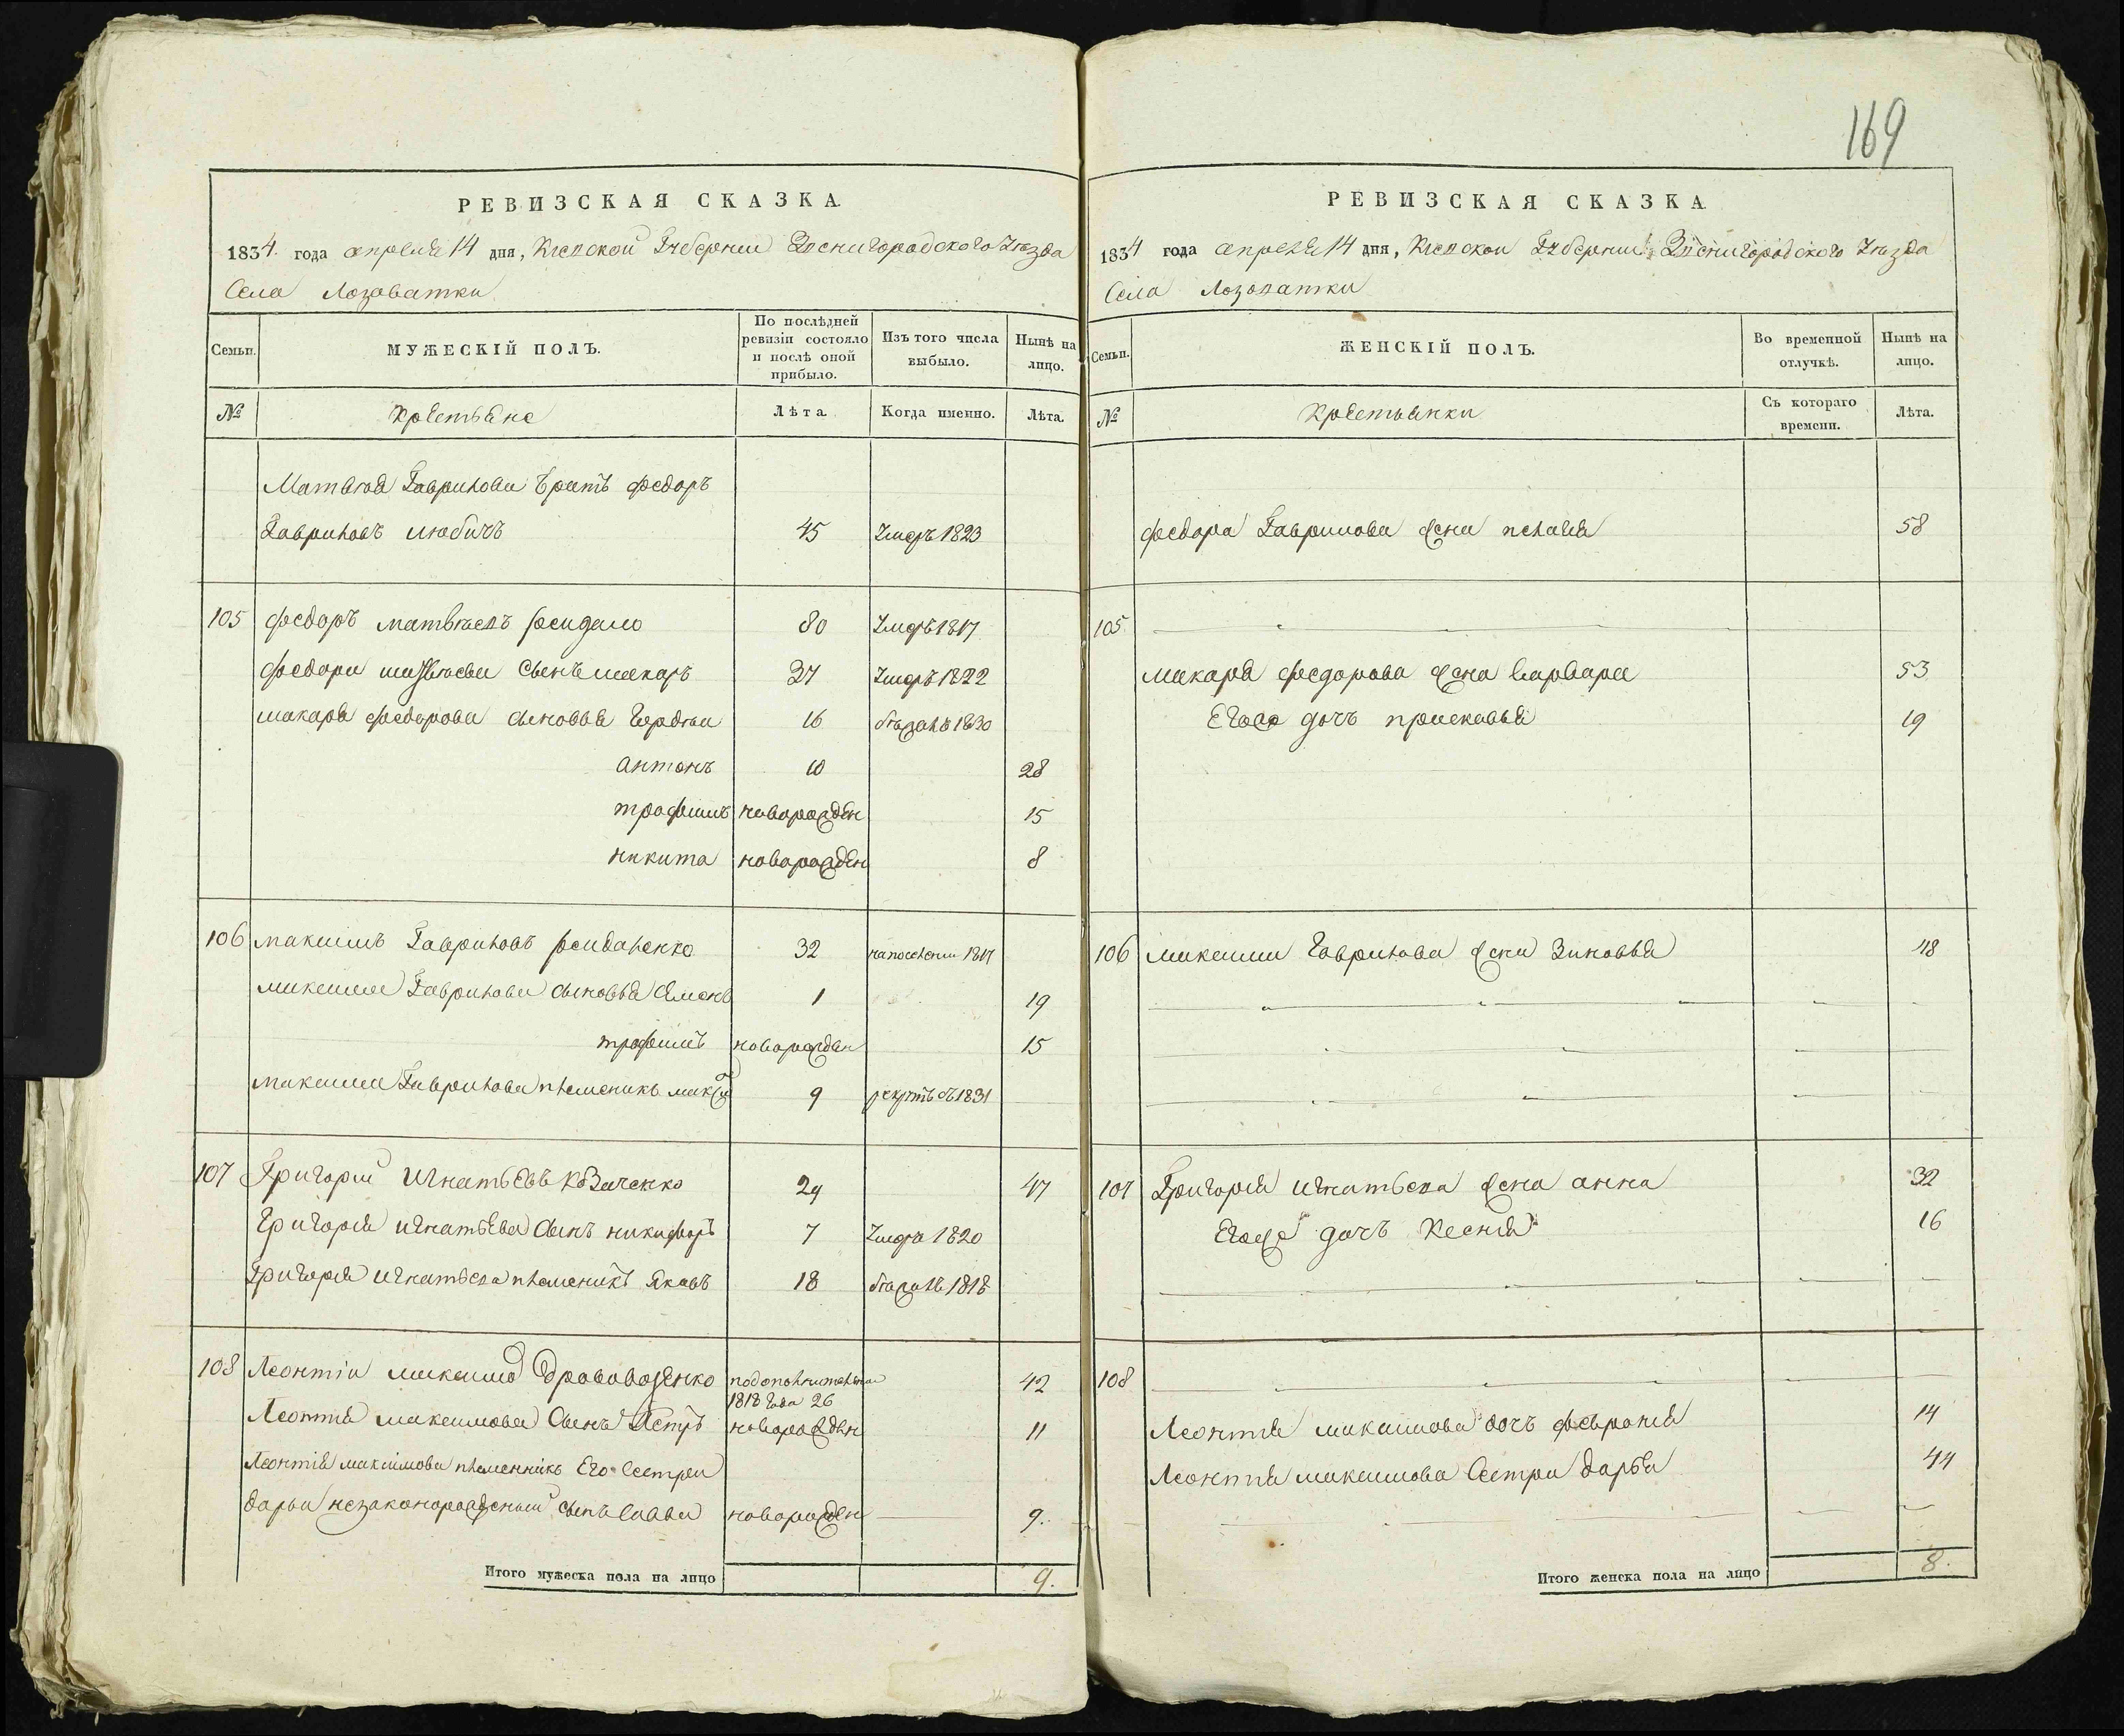 169
РЕВИЗСКАЯ СКАЗКА
1834 года апреля 14 дня, Киевской Губернии Звенигородского Уезда
Села Лозоватки
Семьи.
МУЖЕСКІЙ ПОЛЪ.
По послѣдней ревизіи состояло и послѣ оной прибыло.
Изъ того числа выбыло.
Нынѣ на лицо.
№
Крестьяне
Лѣта
Когда именно.
Лѣта.
Матвея Гаврилова братъ федоръ
Гавриловъ 45 Умеръ 1823
105 федоръ матвѣевъ 80 Умеръ 1817
федора матвѣева Сынъ макаръ 37 Умеръ 1822
макара федорова сыновья 16 бѣжалъ 1830
антонъ 10 28
трофимъ новорожден 15
никита новорожден 8
106 максимъ Гавриловъ 32 на поселении 1817
максима Гаврилова сыновья Семенъ 1 19
трофимъ новорожден 15
максима Гаврилова племеникъ 9 рекрутъ съ 1831
107 Григорий Игнатьевъ Козаченко 29 47
Григория игнатьева Сынъ никифоръ 7 Умеръ 1820
Григория игнатьева племеникъ Яковъ 18 бѣжалъ 1818
108 Леонтіи максимов Дрововозенко по дополнительной 1818 года 26 42
Леонтия максимова Сынъ Петръ новорожден 11
Леонтия максимова племенникъ Его Сестры
дарьи незаконорожденый сынъ Савва новорожден 9.
Итого мужеска пола на лицо 9.
РЕВИЗСКАЯ СКАЗКА
1834 года апреля 14 дня, Киевской Губернии Звенигородского Уезда
Села Лозоватки
Семьи.
ЖЕНСКІЙ ПОЛЪ.
Во временной отлучкѣ.
Нынѣ на лицо.
№
Крестьянки
Съ котораго времени.
Лѣта.
федора Гаврилова жена пелагия 58
105
макара федорова жена варвара 53
Егоже дочь прискавья 19
106 максима Гаврилова жена Зиновья 48
107 Григория игнатьева жена анна 32
Егоже дочъ Ксения 16
108
Леонтия максимова дочъ феврония 14
Леонтия максимова Сестра дарья 44
Итого женска пола на лицо 8.